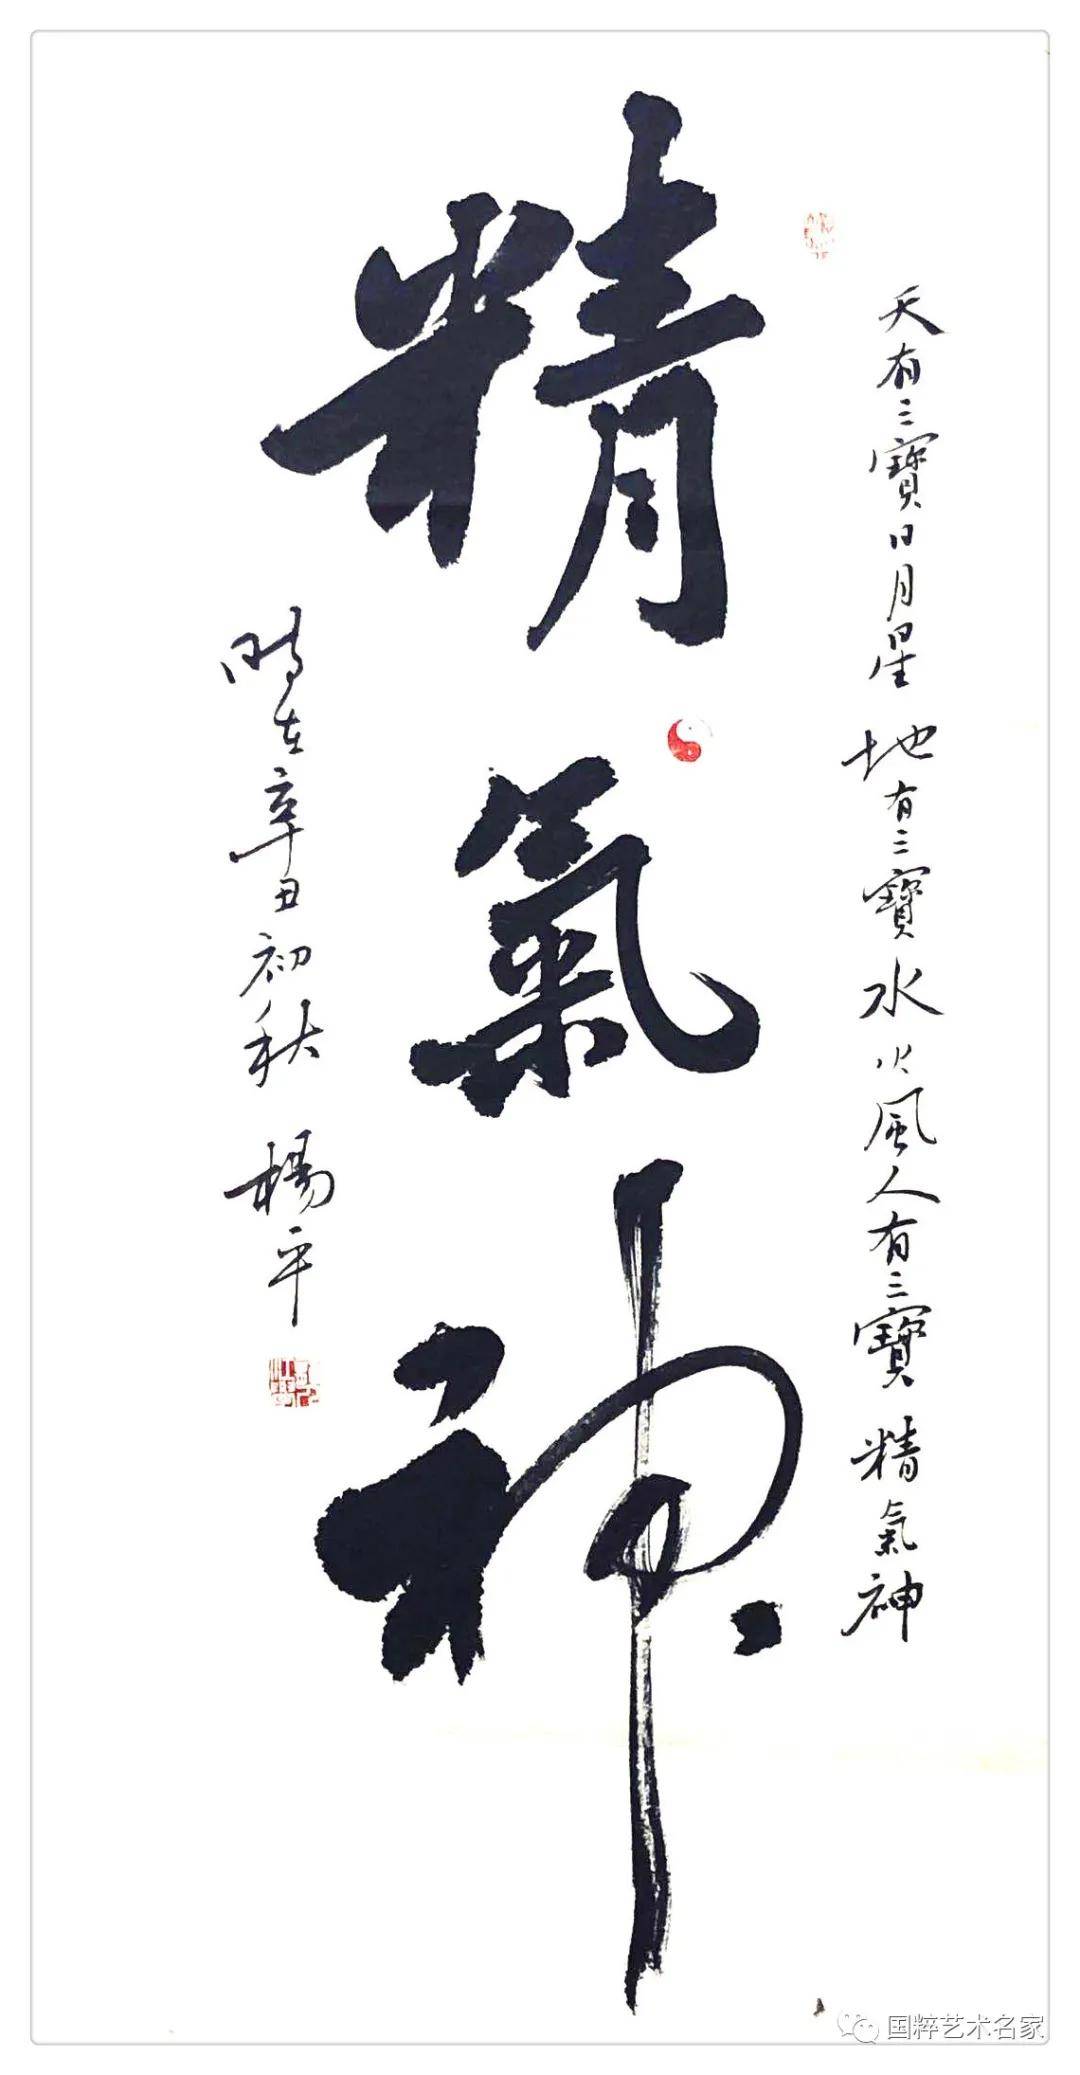 天有三寶日月星 地有三寶水火風人有三寶 精氣神
精氣神
時在辛丑初秋 楊平
国粹艺术名家